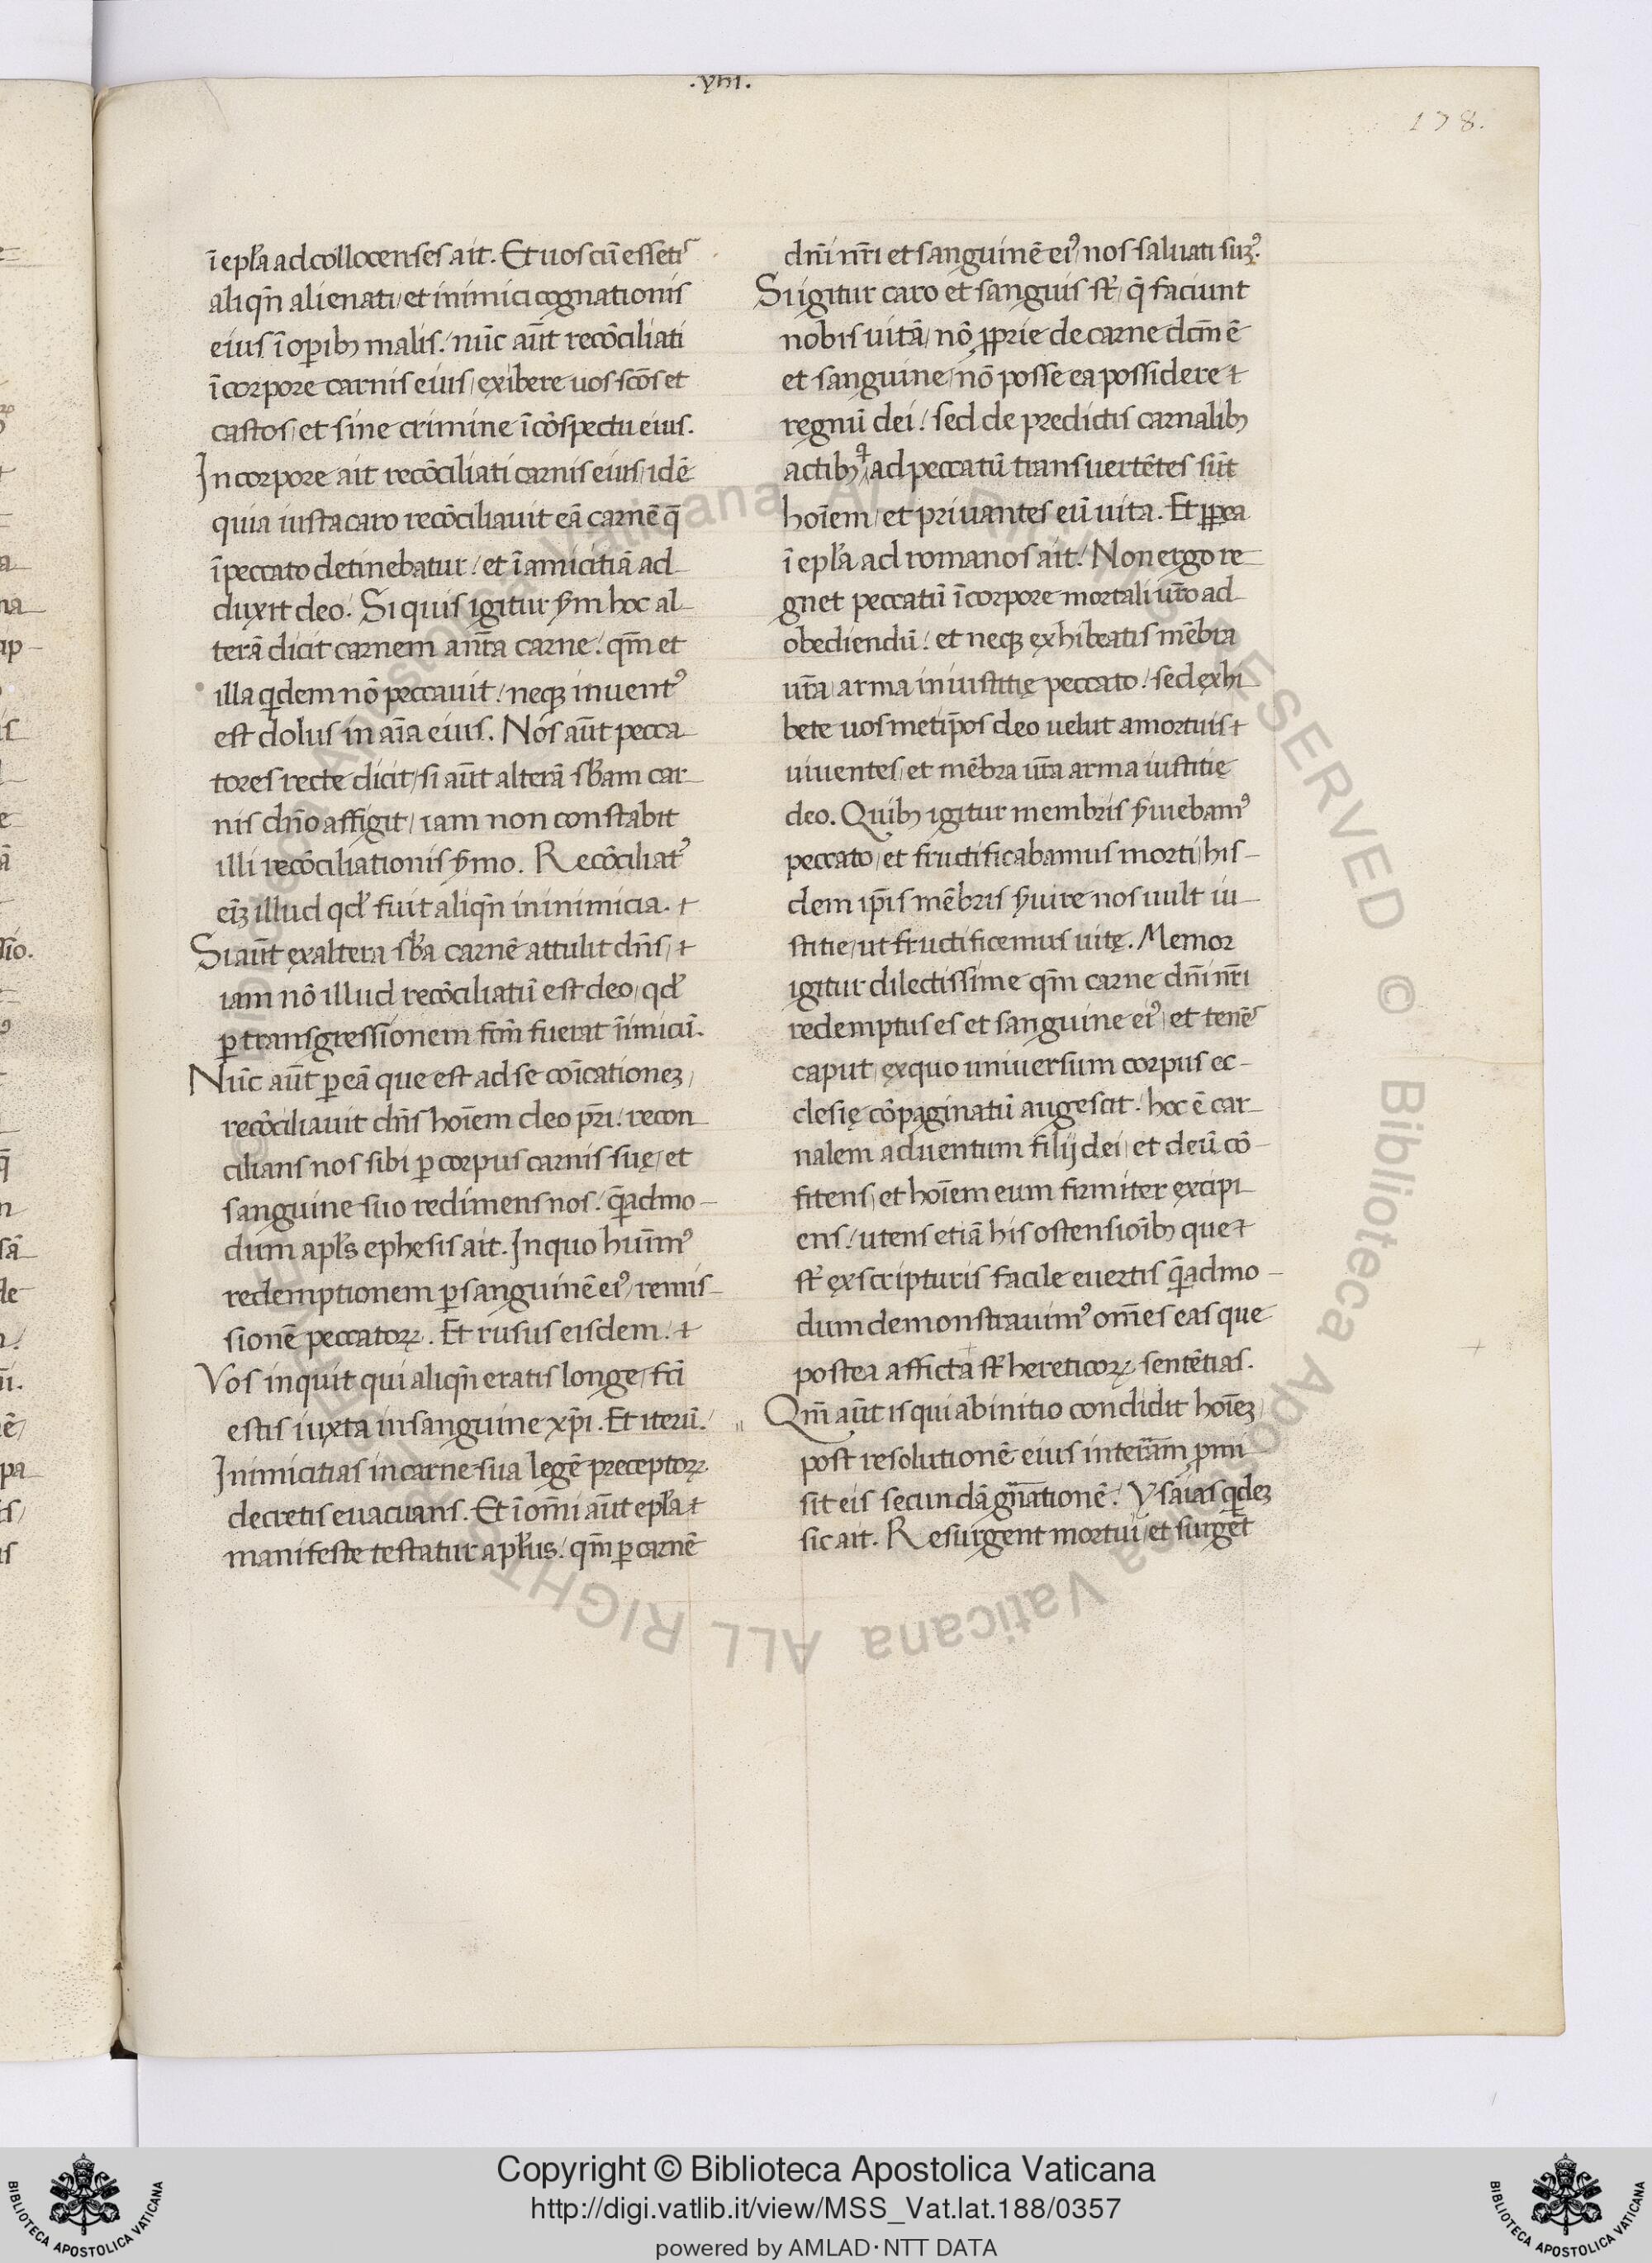 .viii.
178.
ī ep̄la ad collocenses ait. Et uos cū essetis
aliqn̄ alienati/ et inimici cognationis
eius ī oꝑibꝫ malis / nūc aūt recōciliati
ī corpore carnis eius/ exibere uos sc̄os et
castos/ et sine crimine ī cōspectu eius.
In corpore ait recōciliati carnis eius/ idē
quia iusta caro recōciliauit eā carnē q̄
ī peccato detinebatur / et ī amicitiā ad
duxit deo. Si quis igitur s̄m hoc al
terā dicit carnem a nr̄a carne / qm̄ et
illa qdem nō peccauit / neqꝫ inuentꝰ
est dolus in aīa eius. Nos aūt pecca
tores recte dicit/ si aūt alterā sb̄am car
nis dn̄o affigit/ iam non constabit
illi recōciliationis s̄mo. Recōciliatꝰ
eīꝫ illud qd̓ fuit aliqn̄ in inimicia.
Si aūt ex altera sb̄a carnē attulit dn̄s/
iam nō illud recōciliatū est deo/ qd̓
ꝑ transgressionem fc̄m fuerat īimicū.
Nūc aūt ꝑ eā que est ad se coīcationeꝫ/
recōciliauit dn̄s hoīem deo pr̄i / recon
cilians nos sibi ꝑ corpus carnis suę/ et
sanguine suo redimens nos / q̄admo
dum apl̄s ephesis ait. In quo hūimꝰ
redemptionem ꝑ sanguinē eiꝰ/ remis
sionē peccatoꝝ. Et rusus eisdem /
Vos inquit qui aliqn̄ eratis longe/ fc̄i
estis iuxta in sanguine xp̄i. Et iterū /
Inimicitias in carne sua legē preceptoꝝ
decretis euacuans. Et ī om̄i aūt ep̄la
manifeste testatur apl̄us / qm̄ ꝑ carnē
dn̄i nr̄i et sanguinē eiꝰ/ nos saluati sumꝰ.
Si igitur caro et sanguis st̄/ q̄ faciunt
nobis uitā/ nō ꝓprie de carne dc̄m ē
et sanguine/ nō posse ea possidere
regnū dei / sed de predictis carnalibꝫ
actibꝫ q ad peccatū transuertētes sūt
hoīem/ et priuantes eū uita. Et ꝓpea
ī ep̄la ad romanos ait / Non ergo re
gnet peccatū ī corpore mortali ur̄o ad
obediendū / et neqꝫ exhibeatis mēbra
ur̄a/ arma iniustitię peccato / sed exhi
bete uosmetip̄os deo uelut a mortuis
uiuentes/ et mēbra ur̄a arma iustitię
deo. Quibꝫ igitur membris s̄uiebamꝰ
peccato/ et fructificabamus morti/ his
dem ip̄is mēbris s̄uire nos uult iu
stitie/ ut fructificemus uitę. Memor
igitur dilectissime qm̄ carne dn̄i nr̄i
redemptus es et sanguine eiꝰ/ et tenēs
caput/ ex quo uniuersum corpus ec
clesię cōpaginatū augescit / hoc ē car
nalem aduentum filij dei/ et deū cō
fitens/ et hoīem eum firmiter excipi
ens / utens etiā his ostensioībꝫ que
st̄ ex scripturis facile euertis q̄admo
dum demonstrauimꝰ om̄es eas que
postea afficta st̄ hereticoꝝ sentētias.
Qm̄ aūt is qui ab initio condidit hoīeꝫ/
post resolutionē eius in terram ꝓmi
sit eis secundā gn̄ationē / Ysaias qdeꝫ
sic ait. Resurgent mortui/ et surgēt
Copyright © Biblioteca Apostolica Vaticana
http://digi.vatlib.it/view/MSS_Vat.lat.188/0357
powered by AMLAD·NTT DATA